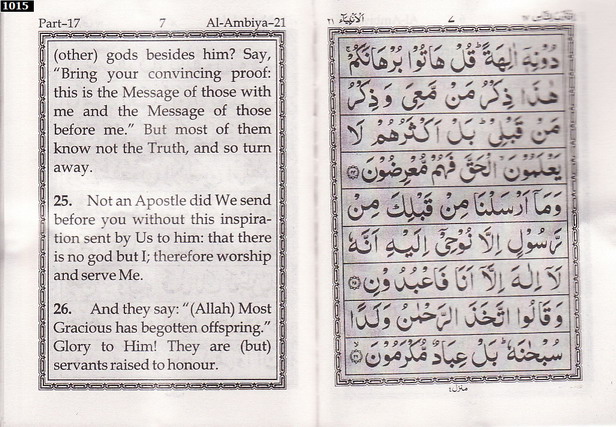 1015
Part–17 7 Al-Ambiya–21
(other) gods besides him? Say,
“Bring your convincing proof:
this is the Message of those with
me and the Message of those
before me.” But most of them
know not the Truth, and so turn
away.
25. Not an Apostle did We send
before you without this inspira-
tion sent by Us to him: that there
is no god but I; therefore worship
and serve Me.
26. And they say: “(Allah) Most
Gracious has begotten offspring.”
Glory to Him! They are (but)
servants raised to honour.
الْاَنْۢبِيَآء ٢١ ٧
دُوْنِهٖۤ اٰلِهَةً ؕ قُلْ هَاتُوْا بُرْهَانَكُمْ ۚ
هٰذَا ذِكْرُ مَنْ مَّعِيَ وَ ذِكْرُ
مَنْ قَبْلِيْ ؕ بَلْ اَكْثَرُهُمْ لَا
يَعْلَمُوْنَ ۙ الْحَقَّ فَهُمْ مُّعْرِضُوْنَ ﴿٢٤﴾
وَمَاۤ اَرْسَلْنَا مِنْ قَبْلِكَ مِنْ
رَّسُوْلٍ اِلَّا نُوْحِيْۤ اِلَيْهِ اَنَّهٗ
لَاۤ اِلٰهَ اِلَّاۤ اَنَا فَاعْبُدُوْنِ ﴿٢٥﴾
وَقَالُوا اتَّخَذَ الرَّحْمٰنُ وَلَدًا
سُبْحٰنَهٗ ؕ بَلْ عِبَادٌ مُّكْرَمُوْنَ ﴿٢٦﴾
منزل ٤